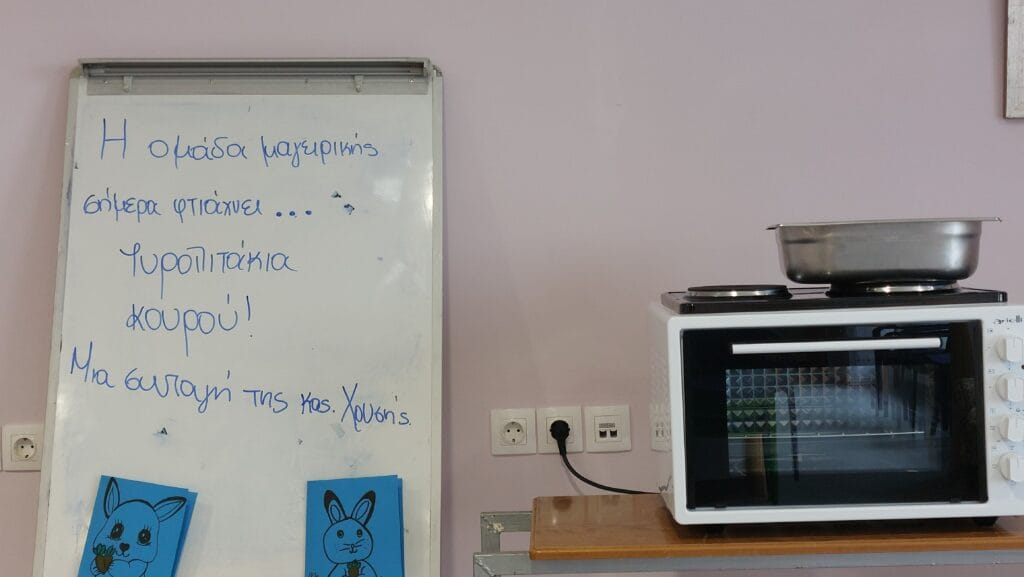 Η ομάδα μαγειρικής
σήμερα φτιάχνει ...
Τυροπιτάκια
κουρού!
Μια συνταγή της κας. Χρυσής.
arielli